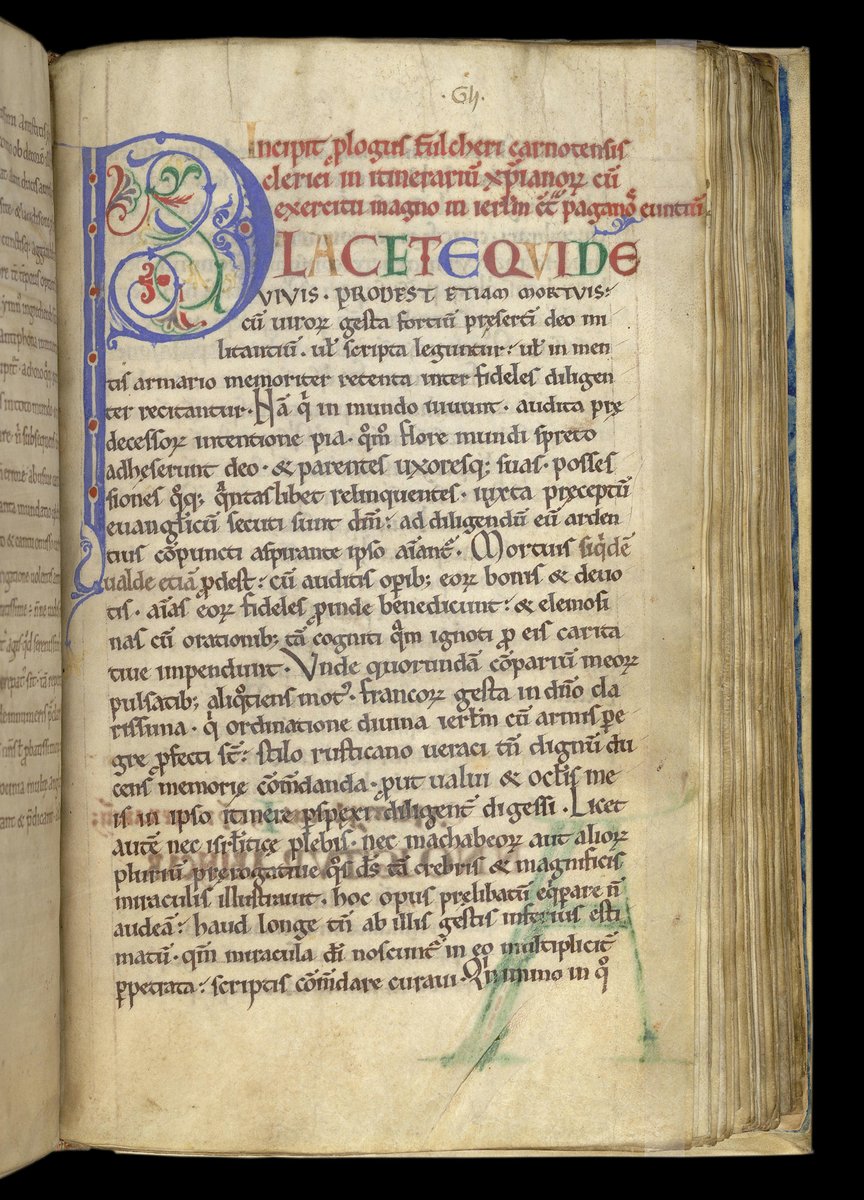 ·Gh·
Incipit ꝓlogus fulcheri carnotensis
clerici in itinerariū xp̄ianoꝝ cū
exercitu magno in ierl̄m cōt̄ paganoꝝ euntiū.
PLACET EQVIDE
VIVIS · PRODEST ETIAM MORTVIS:
cū uiroꝝ gesta fortiū presertī deo mi
litantiū · ul̄ scripta leguntur: ul̄ in men
tis armario memoriter retenta inter fideles diligen
ter recitantur. Nā q̇ in mundo uiuunt · audita prę
decessoꝝ intentione pia · qͦm̄ flore mundi spreto
adheserunt deo · & parentes uxoresq; suas · posses
siones qͦq; qͣntaslibet relinquentes · iuxta pręceptū
euanglicū secuti sunt dm̄: ad diligendū eū arden
tius cōpuncti aspirante ipso aīant᷑. Mortuis siqͥdē
ualde etiā ꝓdest: cū auditis opib; eoꝝ bonis & deuo
tis · aīas eoꝝ fideles ꝓinde benedicunt: & elemosi
nas cū orationib; tā cogniti qͣm ignoti ꝓ eis carita
tiue impendunt. Vnde quorundā cōpariū meoꝝ
pulsatib; aliqͦtiens motꝰ · francoꝝ gesta in dn̄o cla
rissima · q̇ ordinatione diuina ierl̄m cū armis ꝑe
gre ꝓfecti st̄: stilo rusticano ueraci tn̄ dignū du
cens memorię cōm̄danda · ꝓut ualui & ocl̄is me
is in ipso itinere ꝑspexi diligent᷑ digessi. Licet
autē nec isrl̄iticę plebis · nec machabeoꝝ aut alioꝝ
pluriū prerogatiuę qͦs ds̄ tā crebris & magnificis
miraculis illustrauit · hoc opus prelibatū eqͥꝑare n̄
audeā: haud longe tn̄ ab illis gestis inferius esti
matū · qm̄ miracula dī noscunt᷑ in eo multiplicit᷑
ꝑpetrata: scriptis cōm̄dare curaui. Quinimmo in qͦ